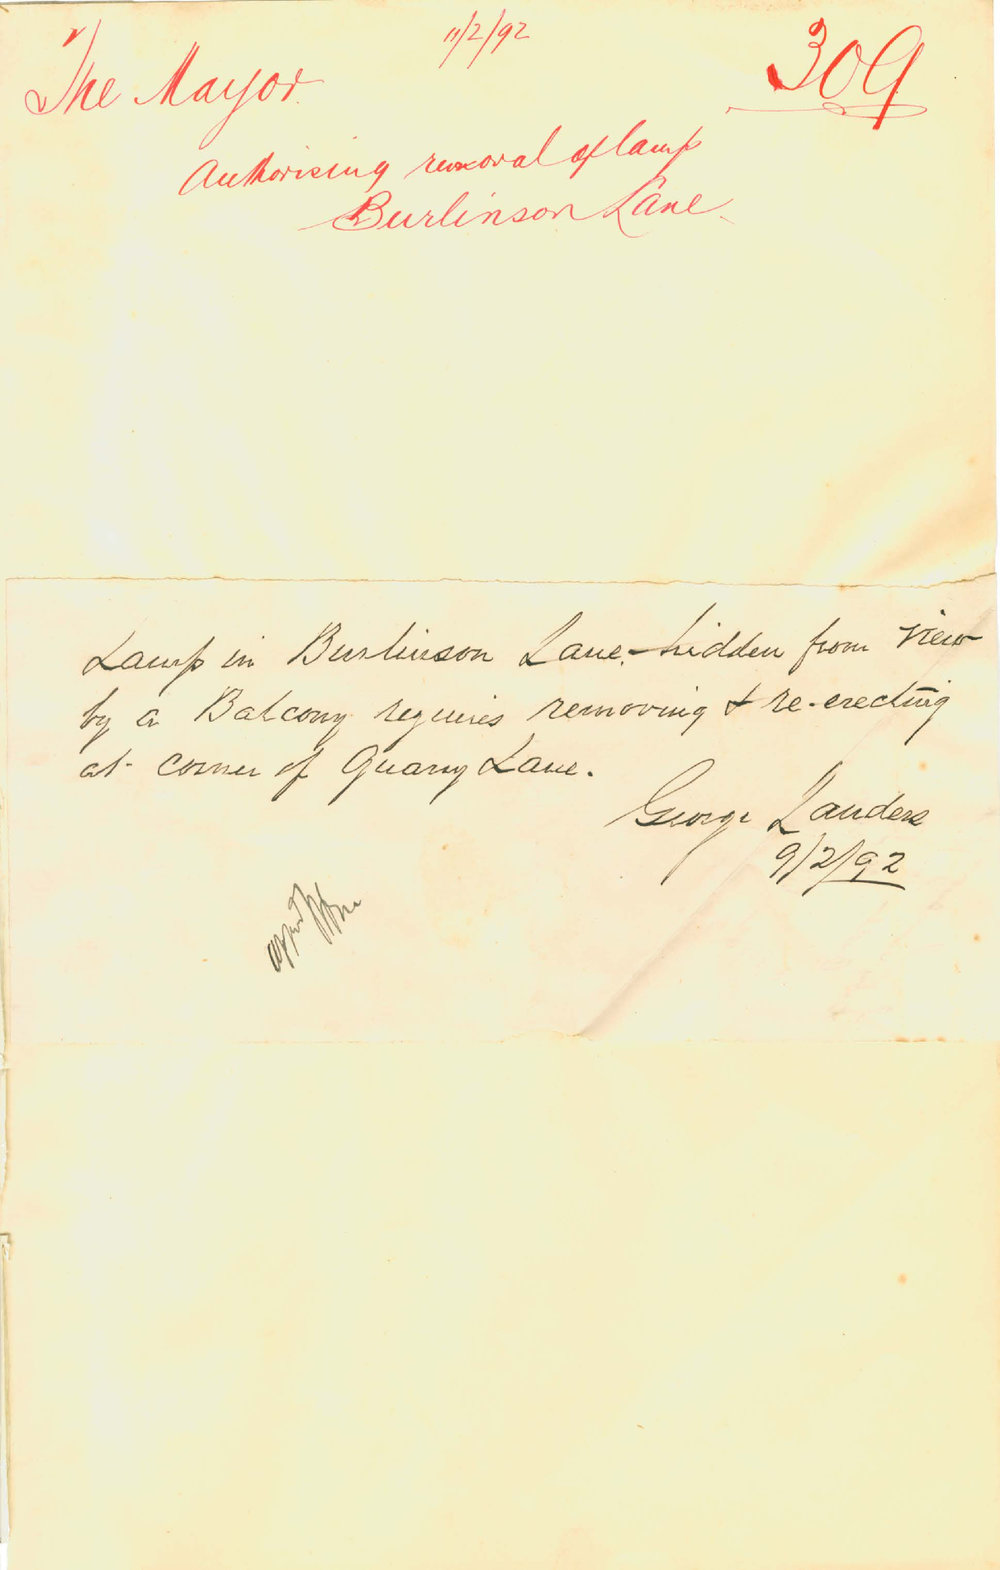 11/2/92
The Mayor
309
Authorising removal of lamp
Burlinson Lane
Lamp in Burlinson Lane - hidden from view
by a Balcony requires removing & re-erecting
at corner of Quarry Lane.
George Landers
9/2/92